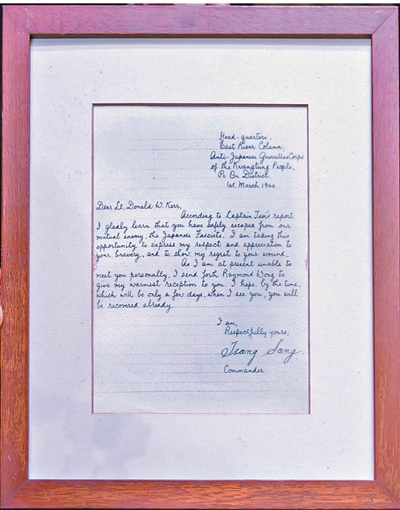 Head-quarters,
East River Column,
Anti-Japanese Guerrillas Corps
of the Kwangtung People,
Po On District.
1st March 1944.
Dear Lt. Donald W. Kerr,
According to Captain Tsen's report
I gladly learn that you have safely escaped from our
mutual enemy, the Japanese Fascists. I am taking this
opportunity to express my respect and appreciation to
your bravery, and to show my regret to your wound.
As I am at present unable to
meet you personally, I send forth Raymond Wong to
give my warmest reception to you. I hope, by the time,
which will be only a few days, when I see you, you will
be recovered already.
I am,
Respectfully yours,
Tsang Sang
Commander